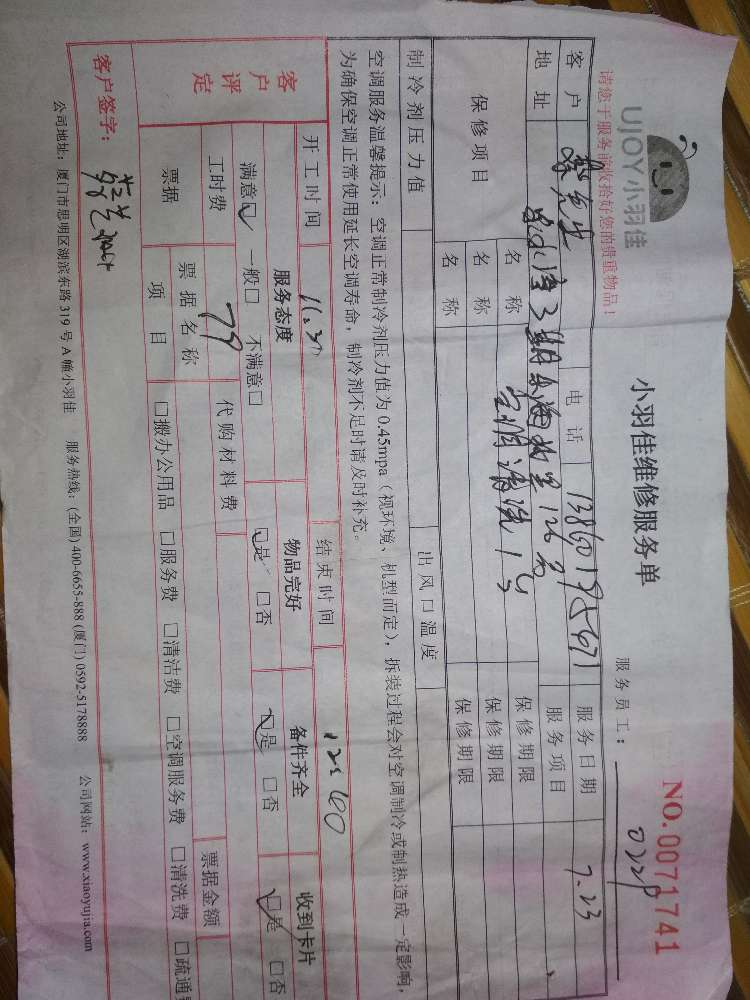 UJOY小羽佳
小羽佳维修服务单
NO.0071741
请您于服务前收拾好您的贵重物品！
服务员工：
客户 蔡先生 电话 服务日期 7.23
地址 服务项目
保修项目 名称 空调清洗1台 保修期限
名称 保修期限
名称 保修期限
制冷剂压力值 出风口温度
空调服务温馨提示：空调正常制冷剂压力值为0.45mpa（视环境、机型而定），拆装过程会对空调制冷或制热造成一定影响，
为确保空调正常使用延长空调寿命，制冷剂不足时请及时补充。
开工时间 11:30 结束时间
客户评定 服务态度 物品完好 备件齐全 收到卡片
满意☑ 一般□ 不满意□ ☑是 □否 ☑是 □否 ☑是 □否
工时费 79 代购材料费
票据 票据名称 票据金额
项目 □搬办公用品 □服务费 □清洁费 □空调服务费 □清洗费 □疏通
客户签字：
公司地址：厦门市思明区湖滨东路319号A幢小羽佳 服务热线：(全国) 400-6655-888 (厦门) 0592-5178888 公司网站：www.xiaoyujia.com